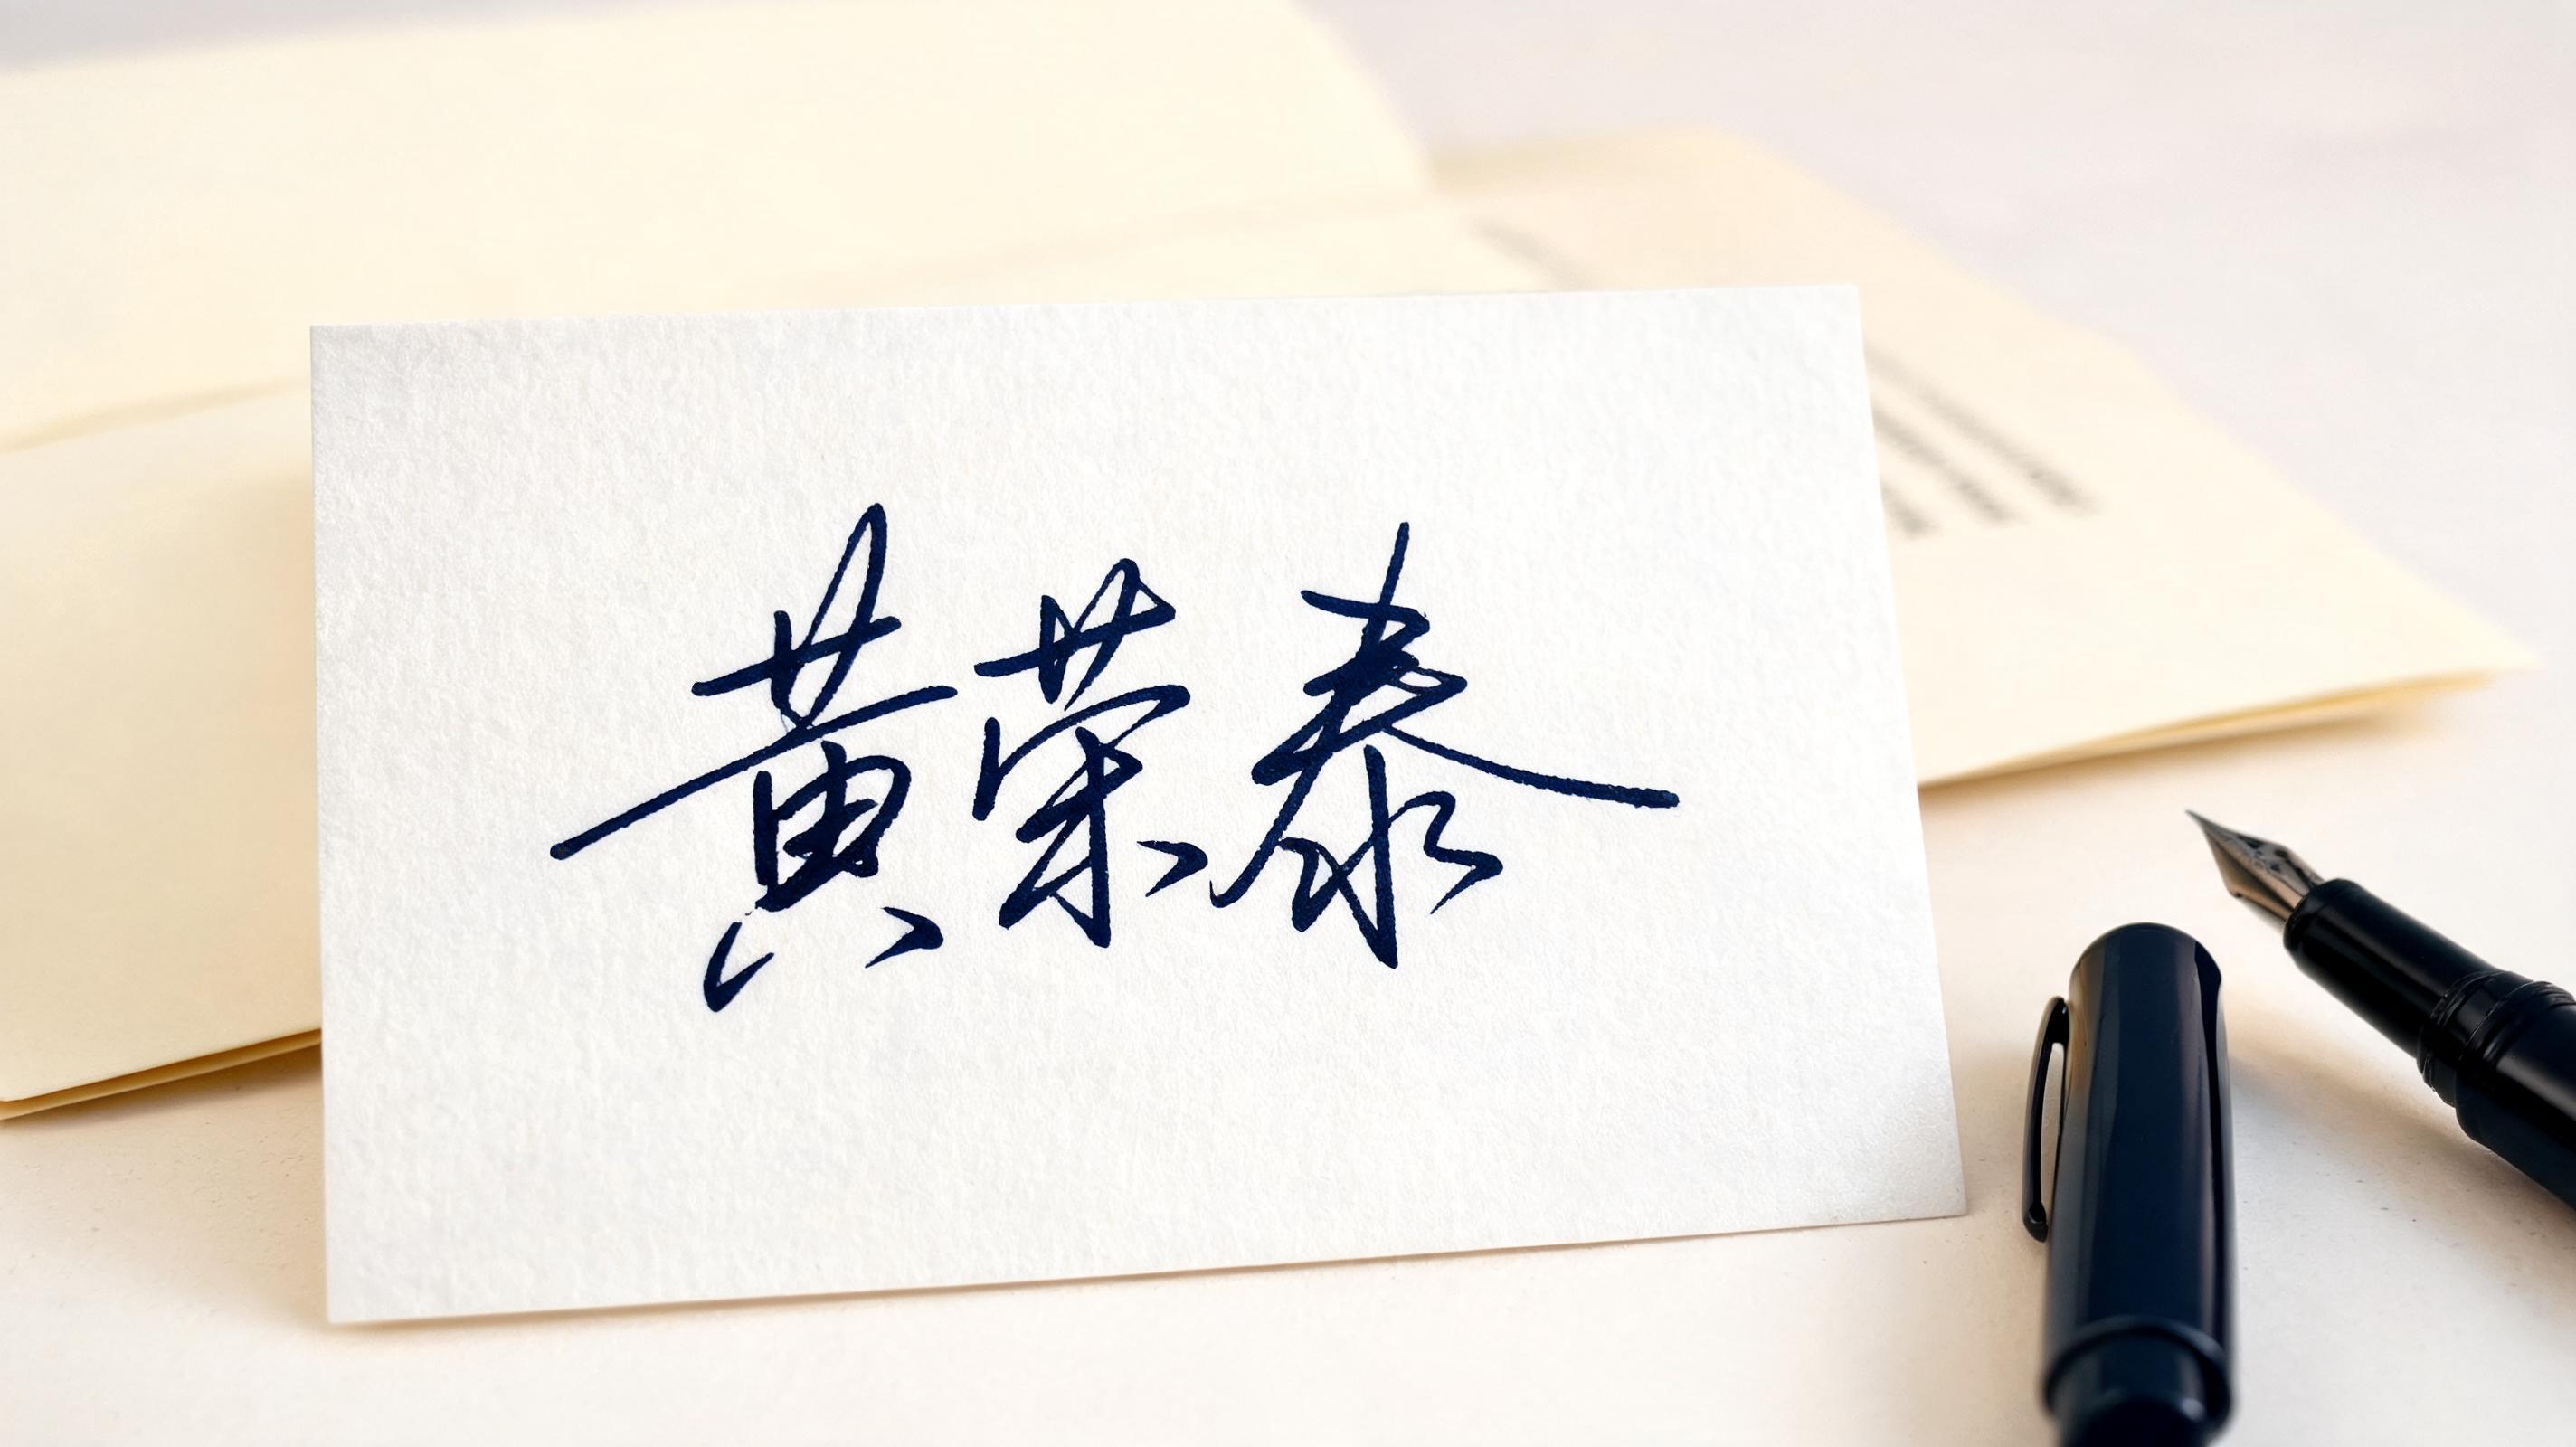 黄荣泰